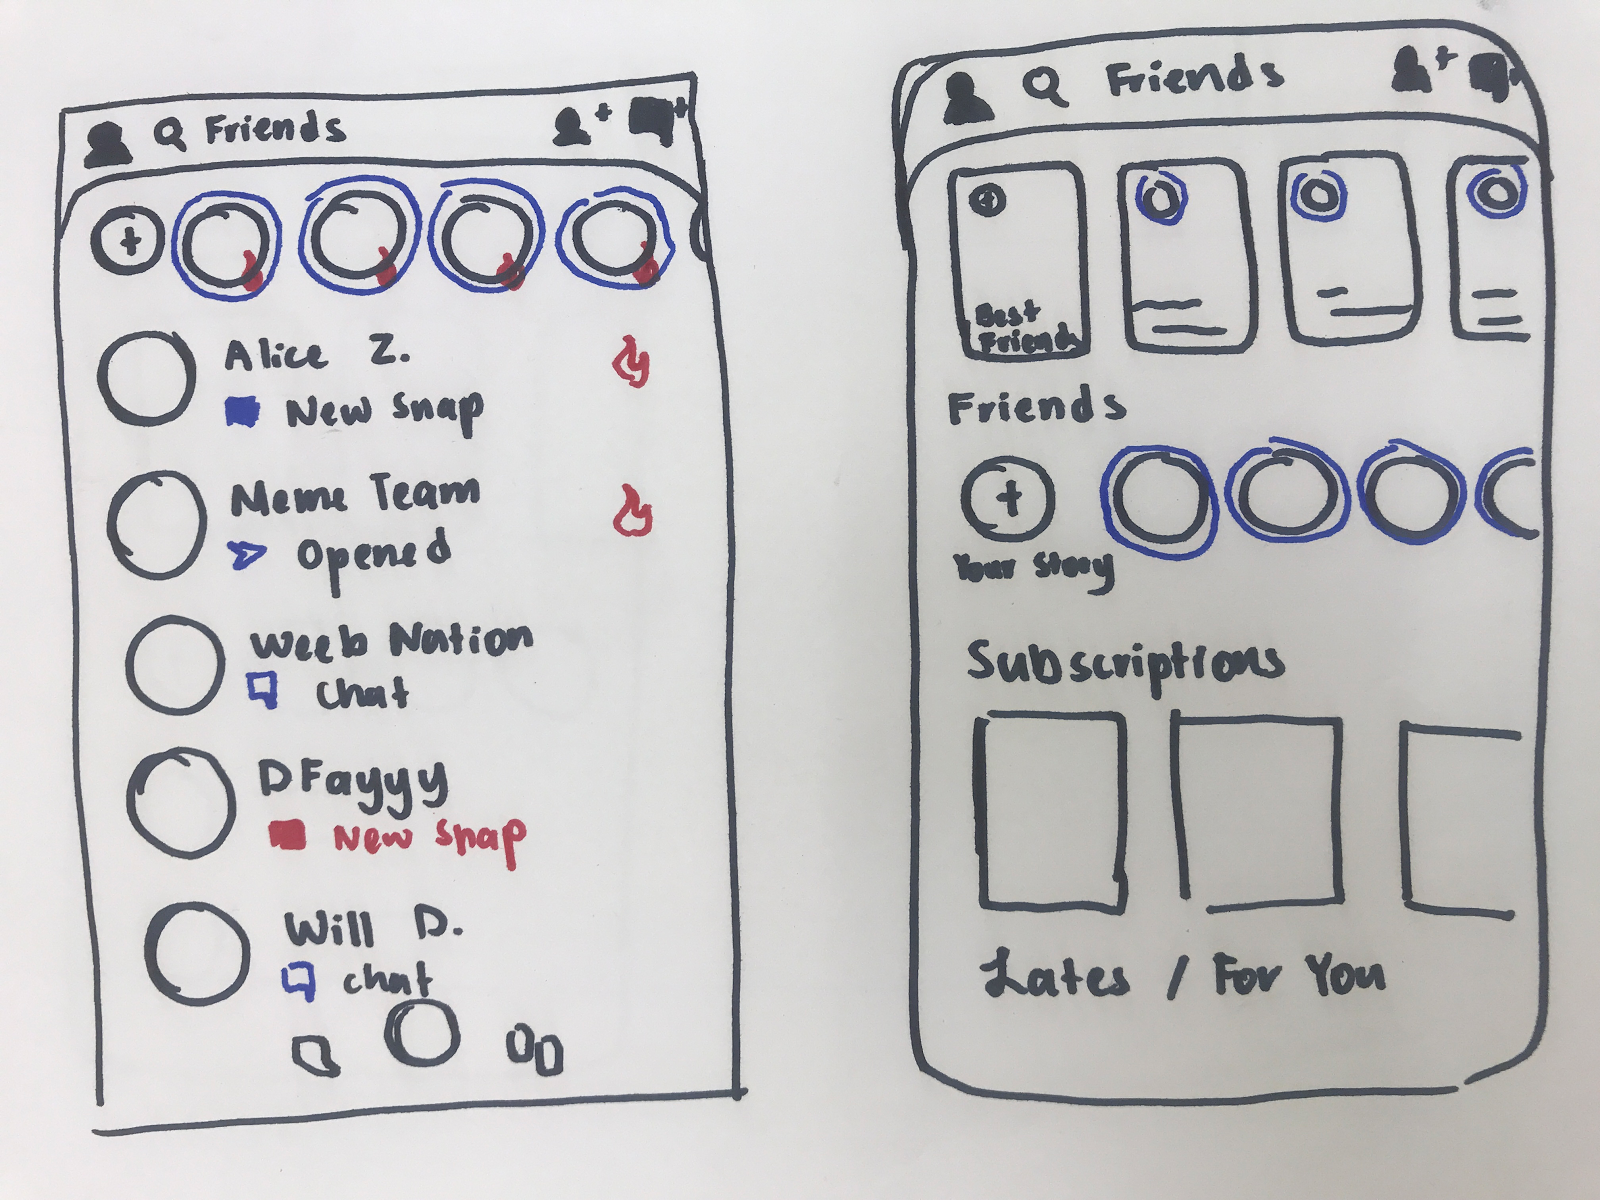 Friends
Alice Z.
New Snap
Meme Team
Opened
Weeb Nation
Chat
DFayyy
New Snap
Will D.
Chat
Friends
Best
Friends
Friends
Your Story
Subscriptions
Lates / For You